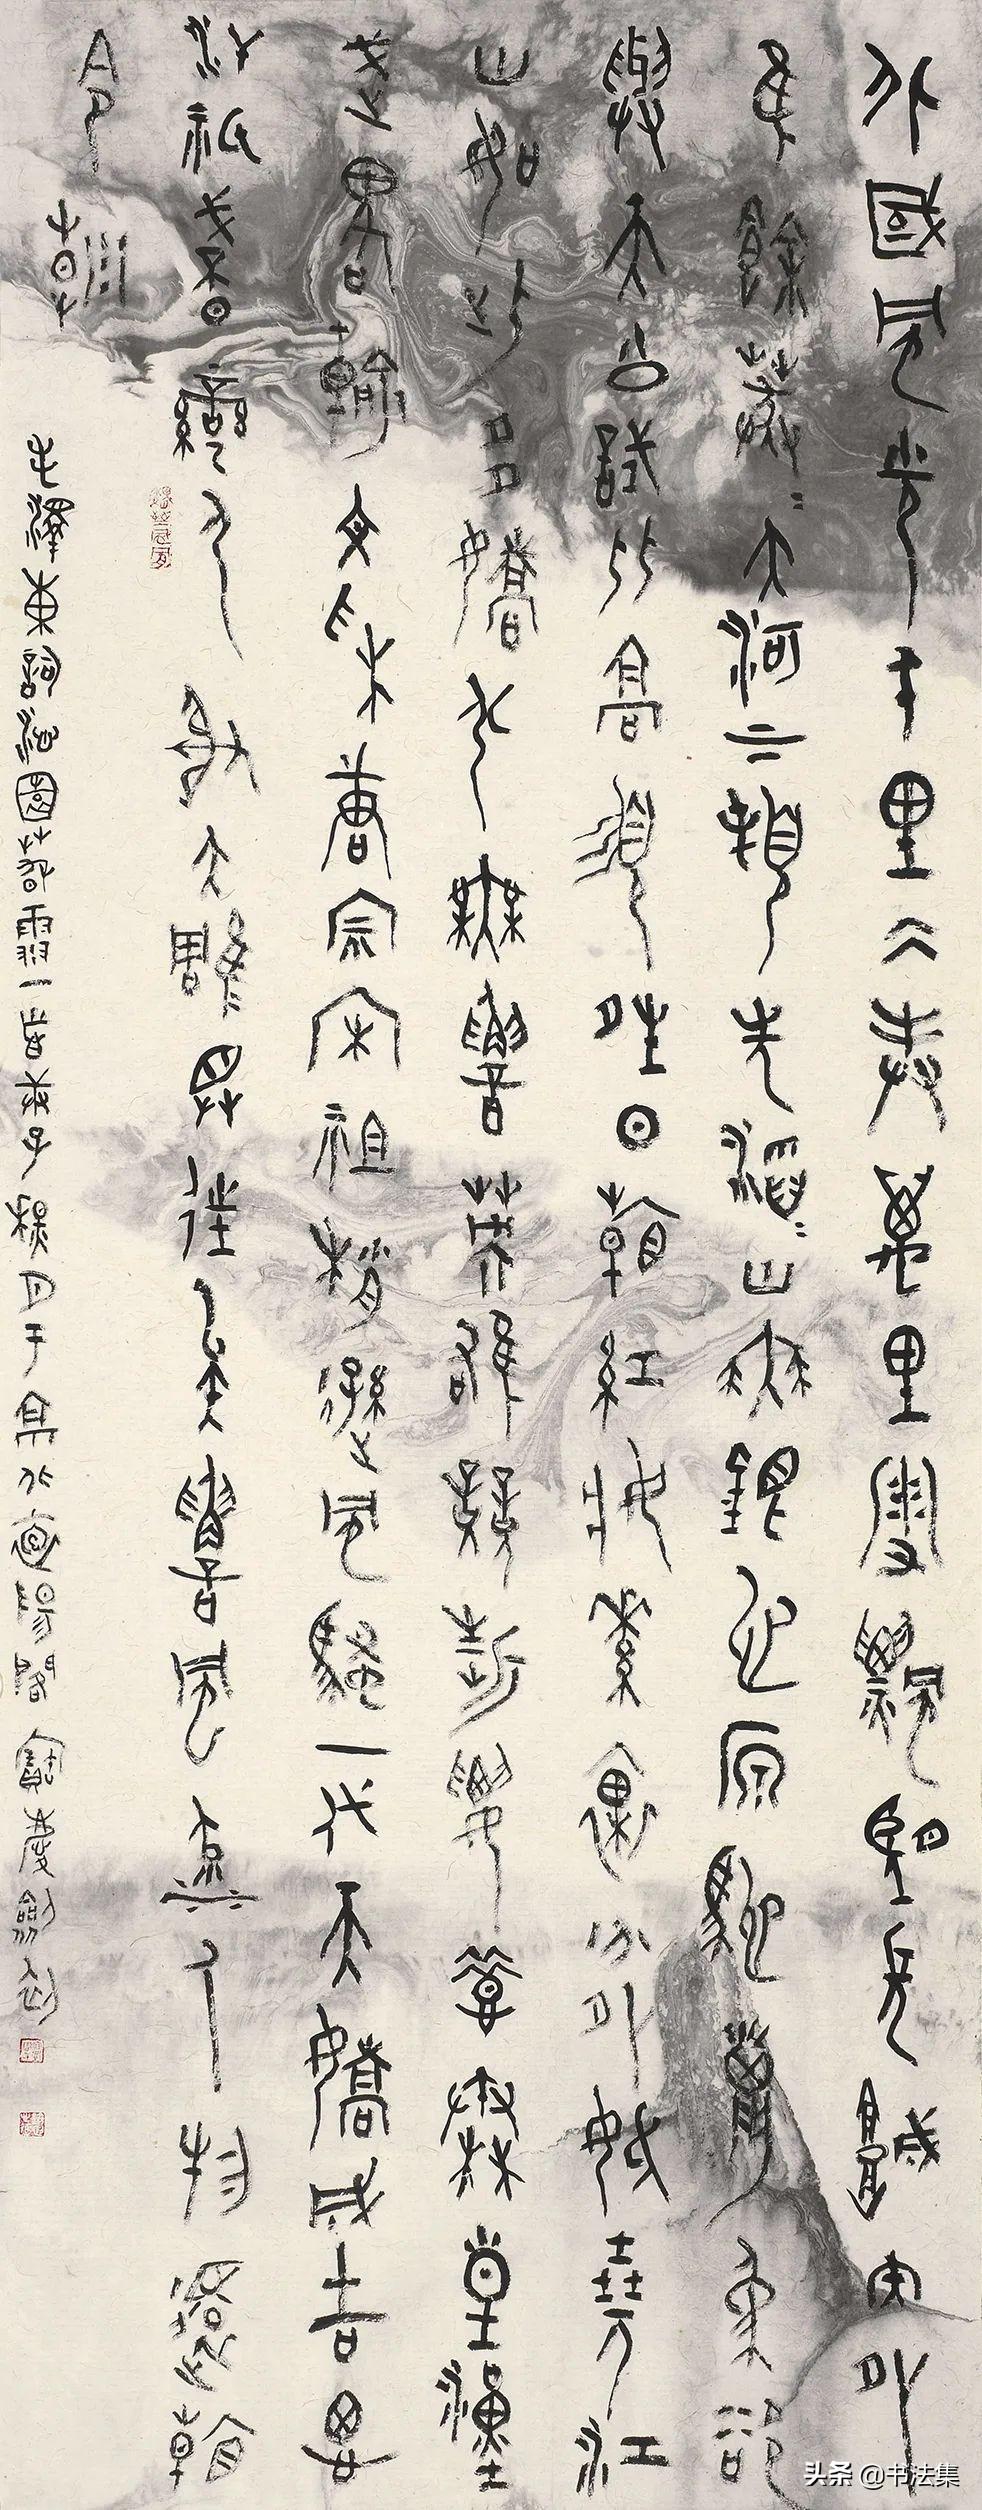 北國風光千里冰封萬里雪飄望長城內外
隹餘莽〻大河上下頓失滔〻山舞銀蛇原馳蠟象欲
與天公試比高須晴日看紅妝素裹分外妖嬈江
山如此多嬌引無數英雄競折腰惜秦皇漢
武略輸文采唐宗宋祖稍遜風騷一代天驕成吉思
汗祇識彎弓射大雕俱往矣數風流人物還看
今朝
毛澤東詞沁園春雪一首 穐月于
头条 @书法集